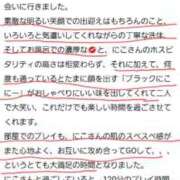 会いに行きました。
素敵な明るい笑顔での出迎えはもちろんのこと、
いろいろと気遣いしてくれながらの丁寧な洗体、
そしてお風呂での濃厚な💋と、にこさんのホス
ピタリティの高さは相変わらず、それに加えて、何
度も通っているとたまに顔を出す「ブラックにこ
にこ」がおしゃべりにいい味を出してくれて二人
で大笑い、これだけでも楽しい時間を過ごさせて
くれます。
部屋でのプレイも、にこさんの肌のスベスベ感が
また心地よく、お互いに攻め合ってGOして、、、
というとても大満足の時間となりました。
にこさんと過ごしていると、120分のプレイ時間